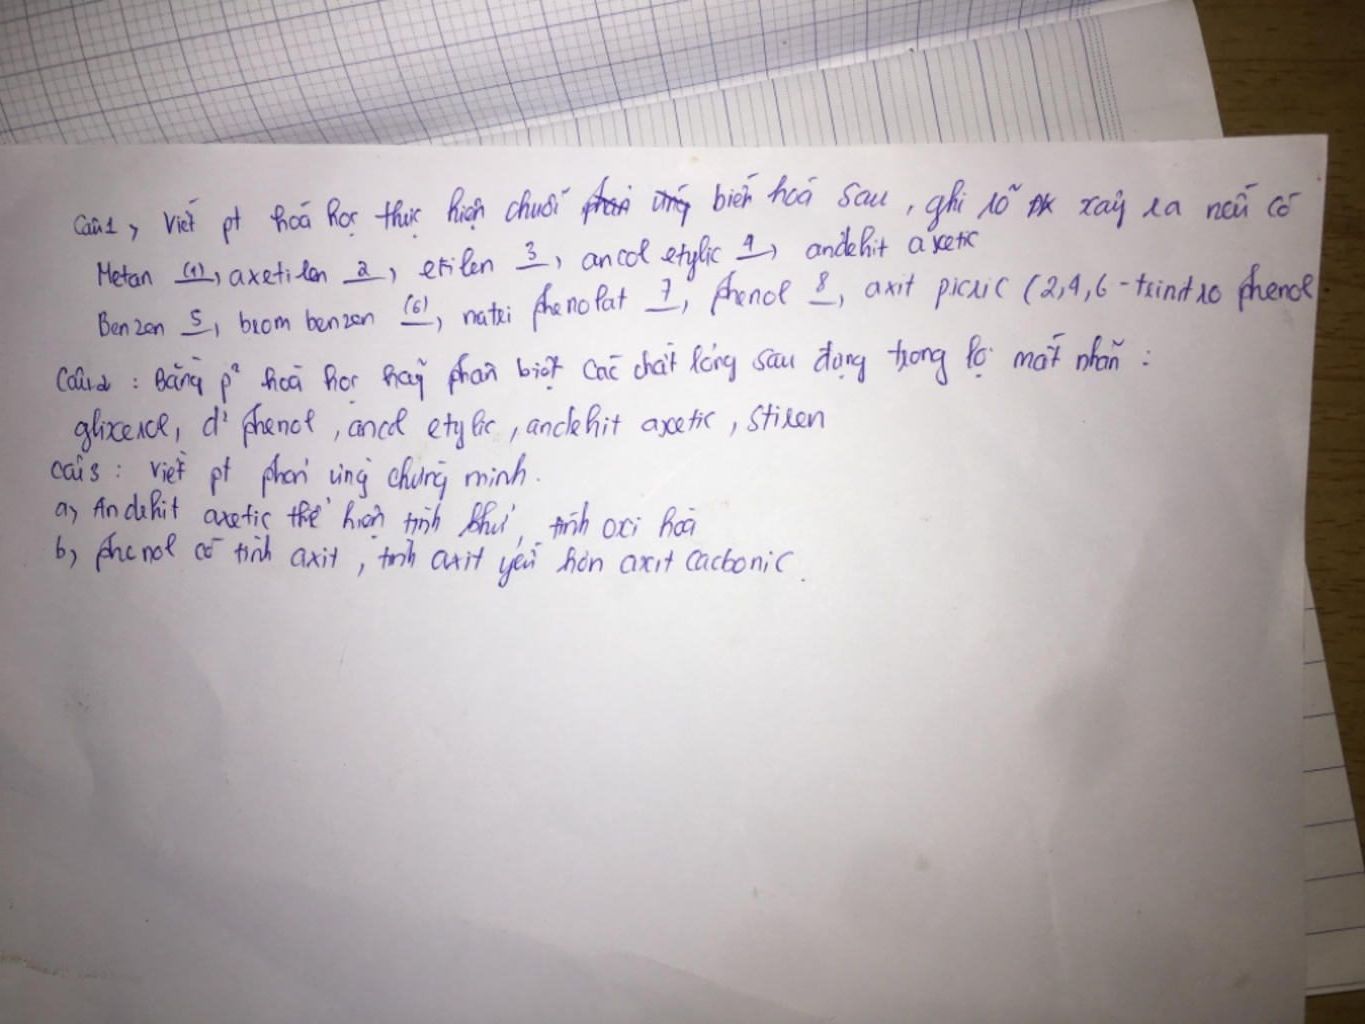 Câu 1, Viết pt hoá học thực hiện chuỗi phản ứng biến hoá sau, ghi rõ đk xảy ra nếu có
Metan (1), axetilen 2, etilen 3, ancol etylic 4, anđehit axetic
Benzen 5, brom benzen (6), natri phenolat 7, phenol 8, axit picric (2,4,6-trinitro phenol
Câu 2 : Bằng p² hoá học hãy phân biệt các chất lỏng sau đựng trong lọ mất nhãn :
glixerol, d² phenol, ancol etylic, anđehit axetic, stiren
Câu 3 : Viết pt phản ứng chứng minh.
a, Anđehit axetic thể hiện tính khử, tính oxi hoá
b, phenol có tính axit, tính axit yếu hơn axit cacbonic.